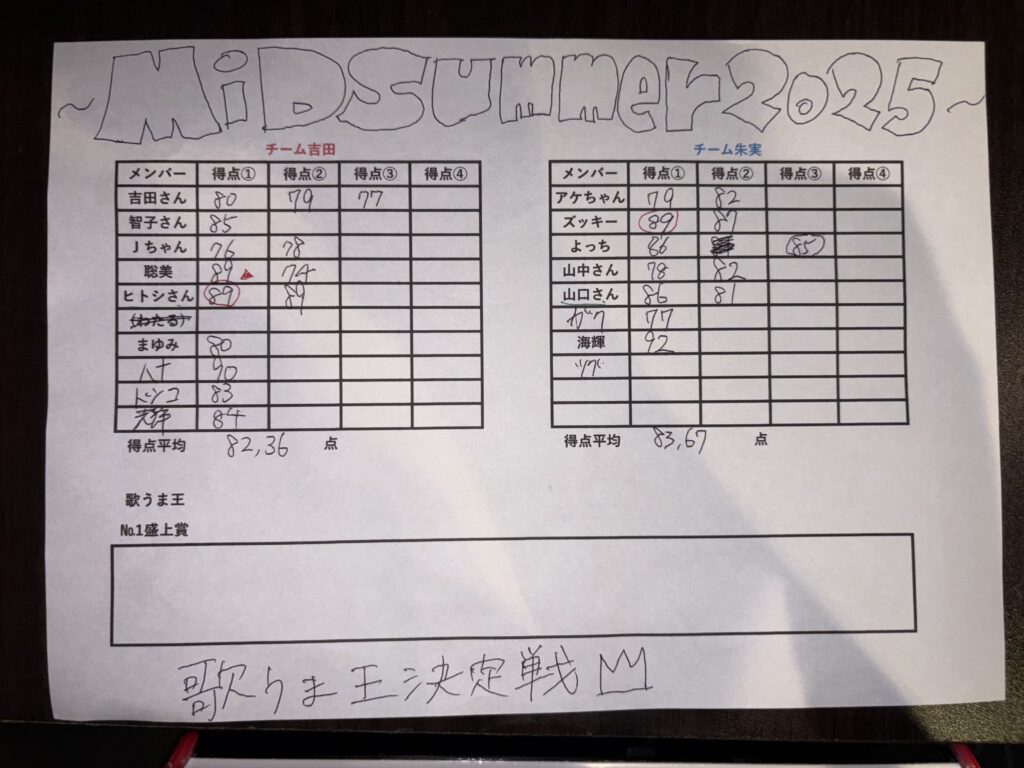 ~MiDSummer2025~
チーム吉田
メンバー 得点① 得点② 得点③ 得点④
吉田さん 80 79 77
智子さん 85
Jちゃん 76 78
聡美 89 74
ヒトシさん 89 89
(わたる)
まゆみ 80
ハナ 90
ドンコ 83
84
得点平均 82,36 点
チーム朱実
メンバー 得点① 得点② 得点③ 得点④
アケちゃん 79 82
ズッキー 89 87
よっち 86 85
山中さん 78 82
山口さん 86 81
ガク 77
海輝 92
得点平均 83,67 点
歌うま王
№1盛上賞
歌うま王決定戦